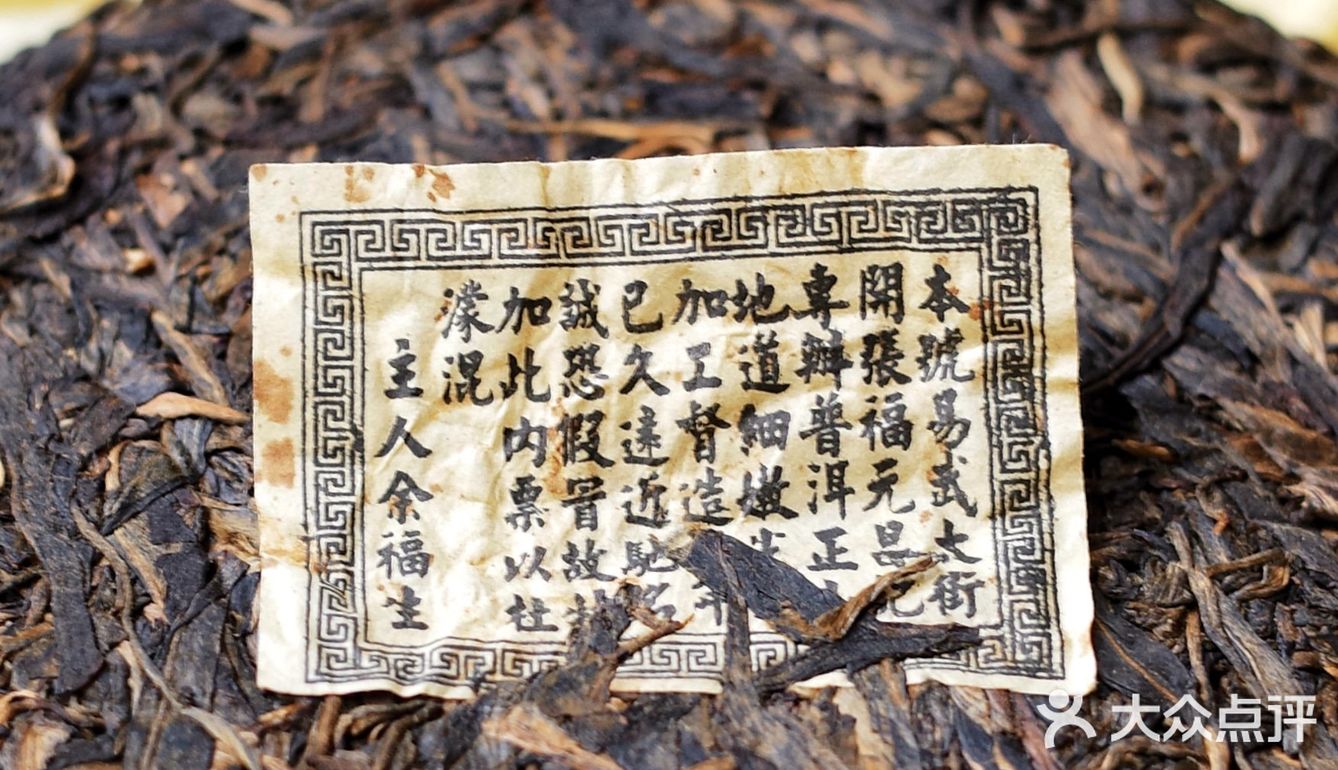 本號易武大街
開張福元昌記
專辦普洱正山
地道細嫩生
加工督造年
已久遠近馳名
誠恐假冒故特
加此內票以杜
濛混
主人余福生
大众点评